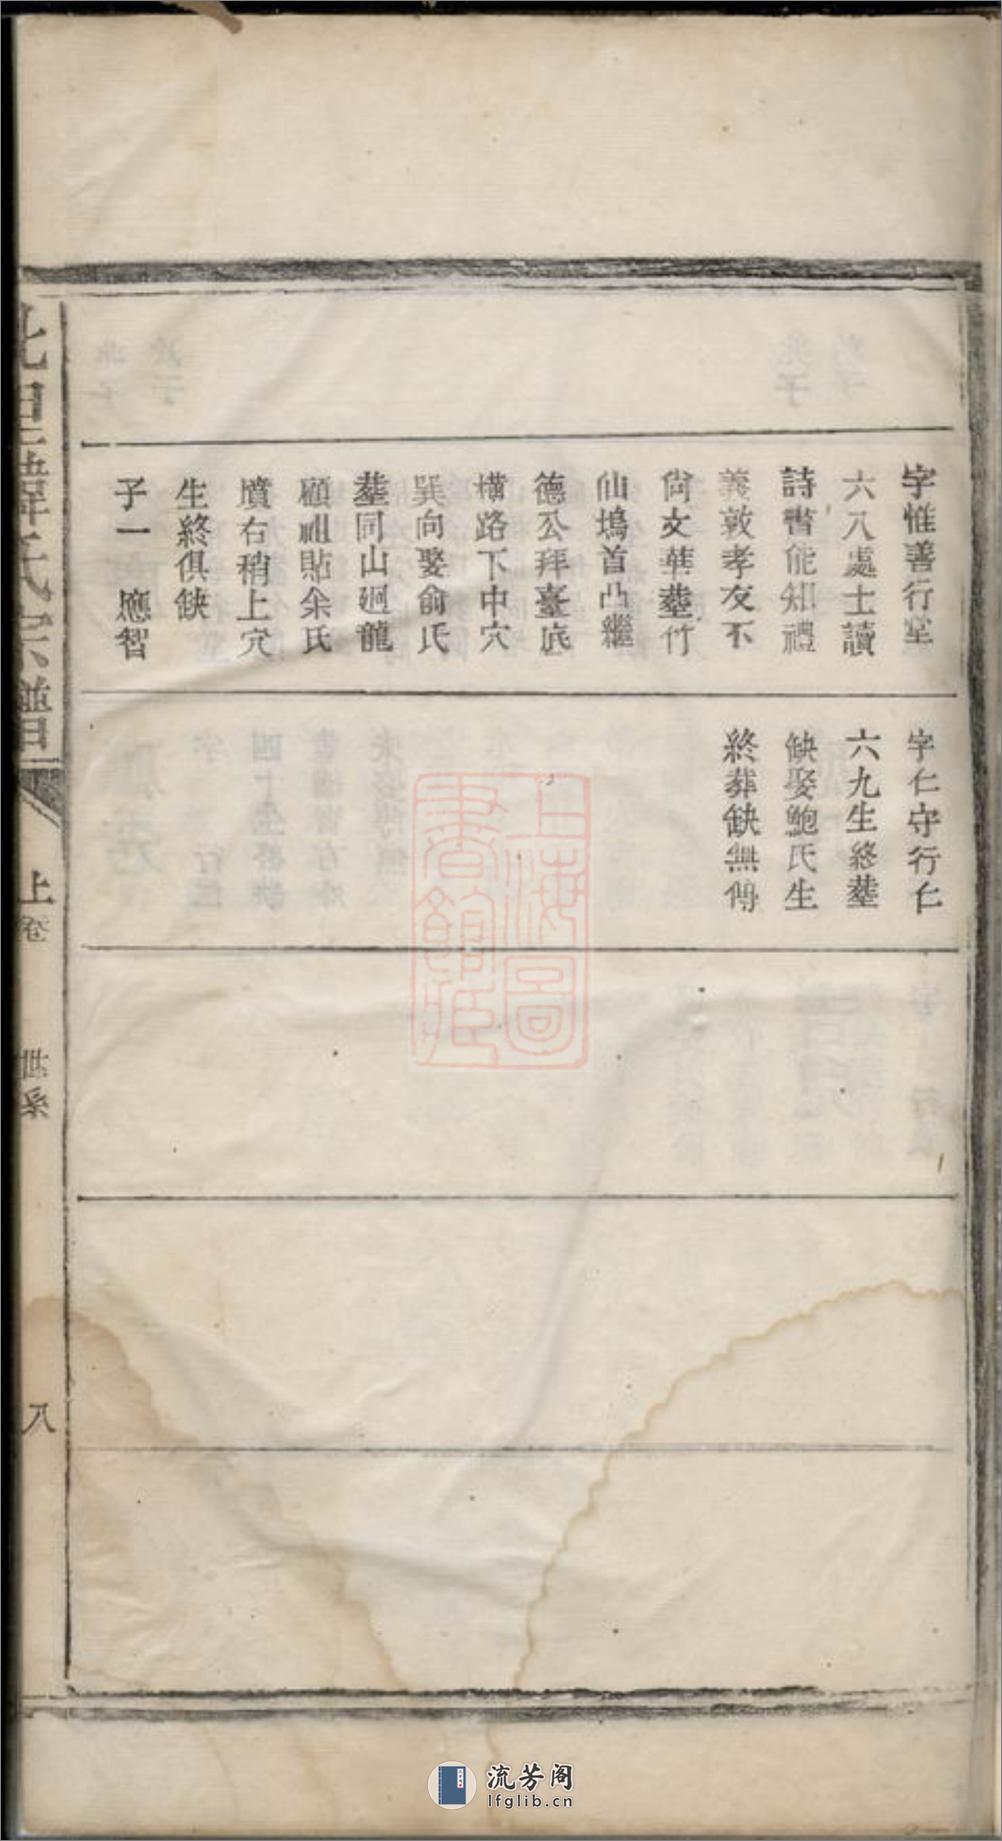 字惟善行堂
六八處士讀
詩書能知禮
義敦孝友不
尙文華塟竹
仙塢首凸繼
德公拜臺底
橫路下中穴
巽向娶俞氏
塟同山廻龍
顧祖貼余氏
墳右稍上穴
生終俱缺
子一 應智
字仁守行仁
六九生終塟
缺娶鮑氏生
終葬缺無傳
氏宗譜
上卷
世系
八
上海圖
書館藏
流芳阁
lfglib.cn